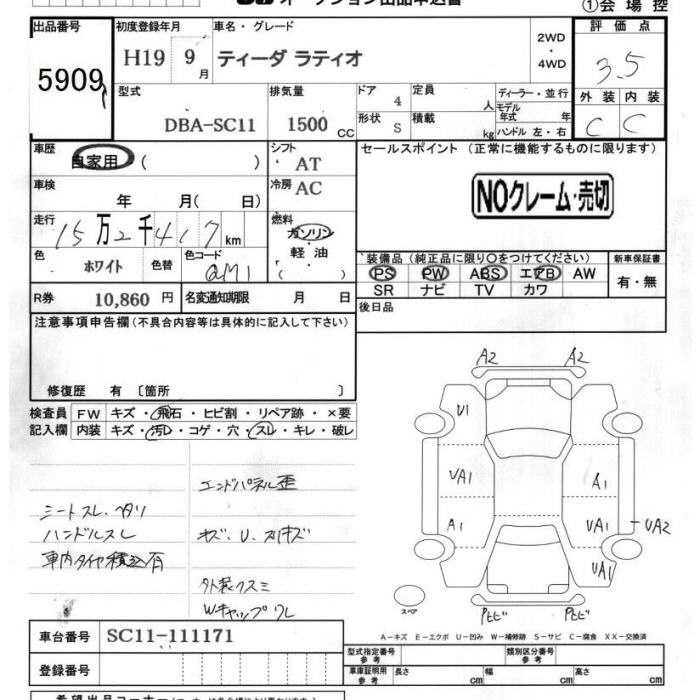 ①会場控
出品番号 初度登録年月 車名・グレード 評価点
5909 H19 9月 ティーダ ラティオ 2WD・4WD 3.5
型式 排気量 ドア 4 定員 人 ディーラー・並行 外装 内装
DBA-SC11 1500 CC 形状 S 積載 kg モデル年式 年 ハンドル 左・右 C C
車歴 自家用 ( ) シフト AT セールスポイント (正常に機能するものに限ります)
車検 年 月( 日) 冷房 AC NOクレーム・売切
走行 15万2千417km 燃料 ガソリン・軽油 ( )
色 ホワイト 色替 色コード QM1 装備品 (純正品に限り○をつけてください) 新車保証書
PS PW ABS エアB AW 有・無
SR ナビ TV カワ
R券 10,860 円 名変通知期限 月 日 後日品
注意事項申告欄 (不具合内容等は具体的に記入して下さい)
修復歴 有 〔箇所 〕
検査員 FW キズ・飛石・ヒビ割・リペア跡・×要
記入欄 内装 キズ・汚レ・コゲ・穴・スレ・キレ・破レ
A2 A2
U1
UA1 A1
A1 UA1 UA2
UA1
エンドパネル歪
シートスレ、ヘタリ
ハンドルスレ
車内タイヤ積込有
外装クスミ
Wキャップワレ
スペア
Pヒビ PヒビA
A-キズ E-エクボ U-凹み W-補修跡 S-サビ C-腐食 XX-交換済
車台番号 SC11-111171
型式指定番号 参考 類別区分番号 参考
登録番号 車庫証明用 参考 長さ cm 幅 cm 高さ cm